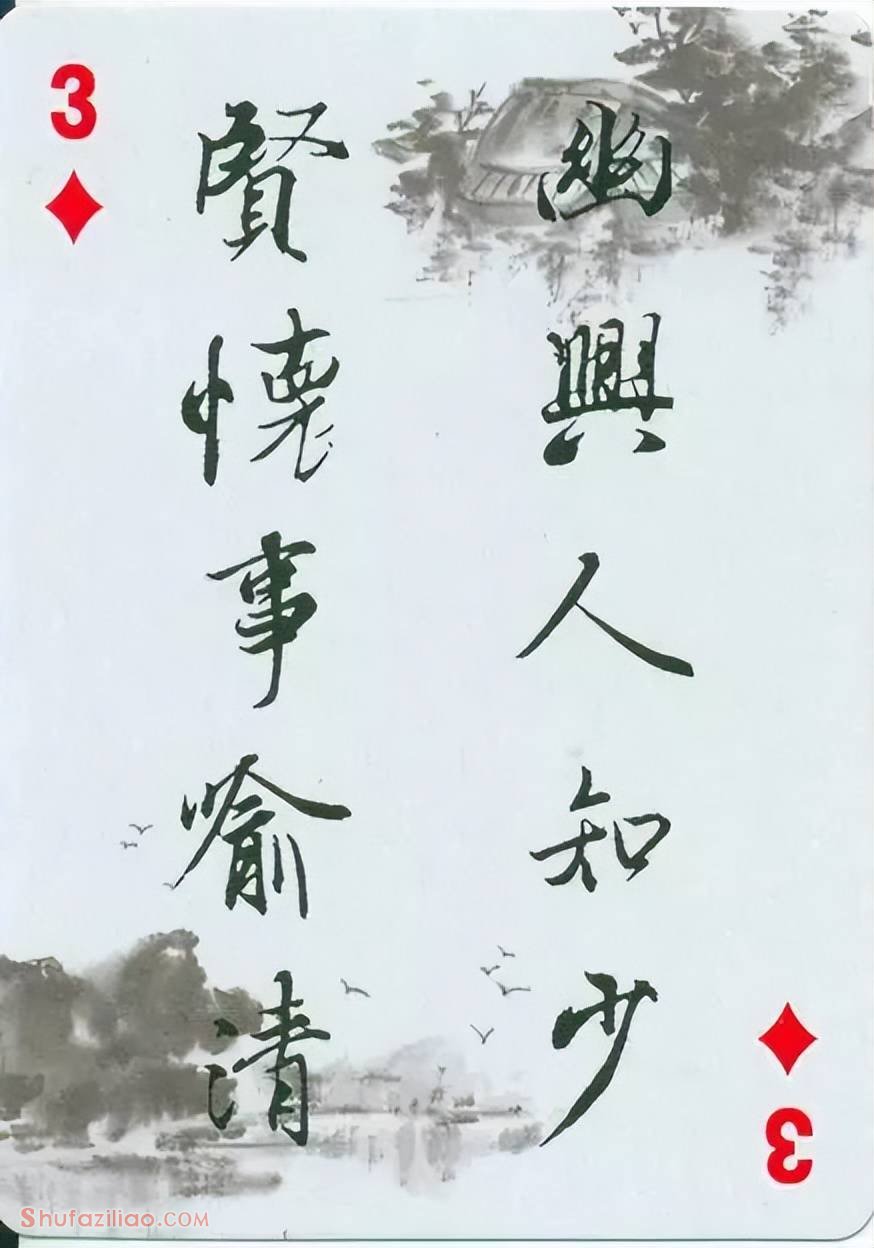 3
幽興人知少
賢懷事喻清
3
Shufaziliao.com